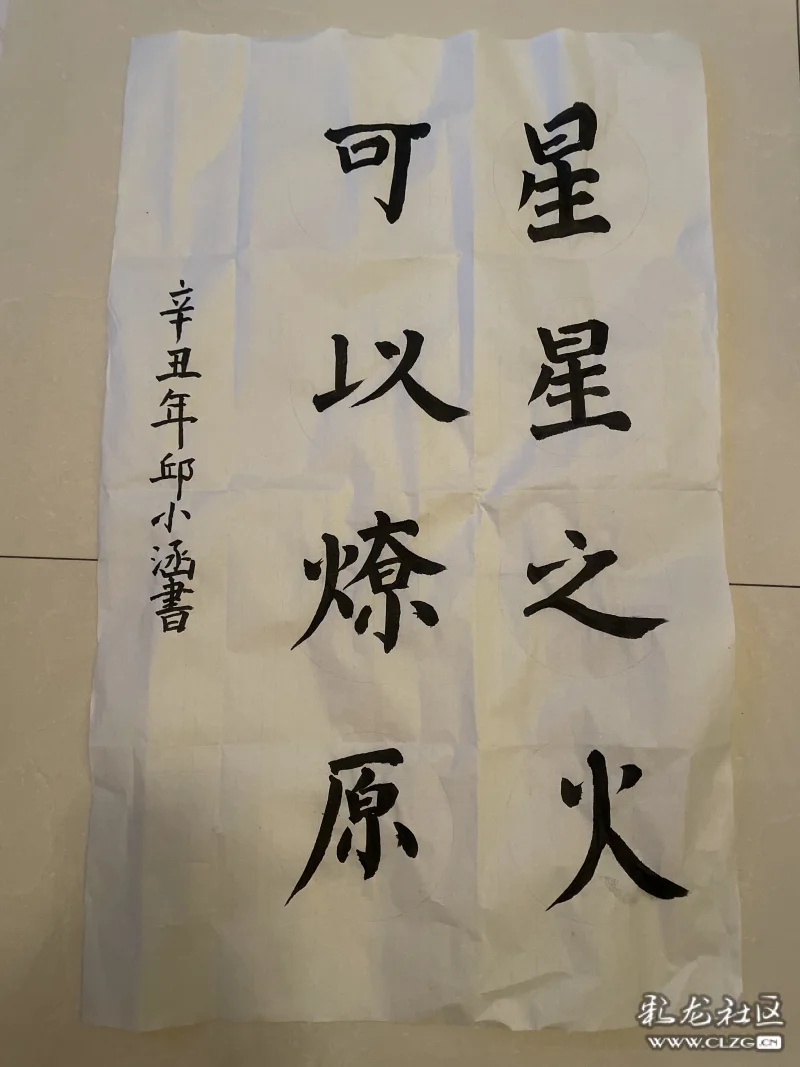 星星之火
可以燎原
辛丑年邱小涵書
彩龙社区
WWW.CLZG.CN